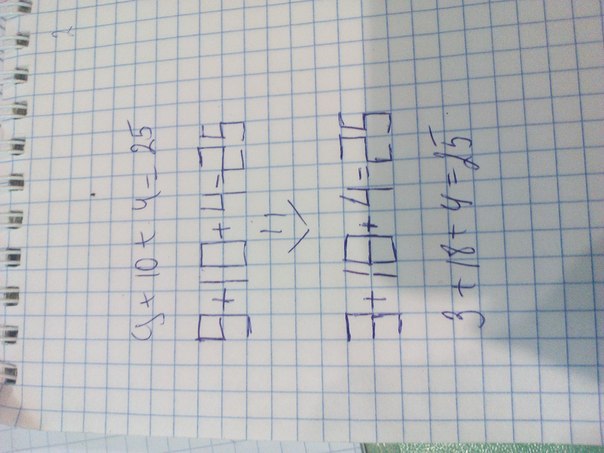 9 + 10 + 4 = 25
9 + 10 + 4 = 25
⇒
3 + 18 + 4 = 25
3 + 18 + 4 = 25